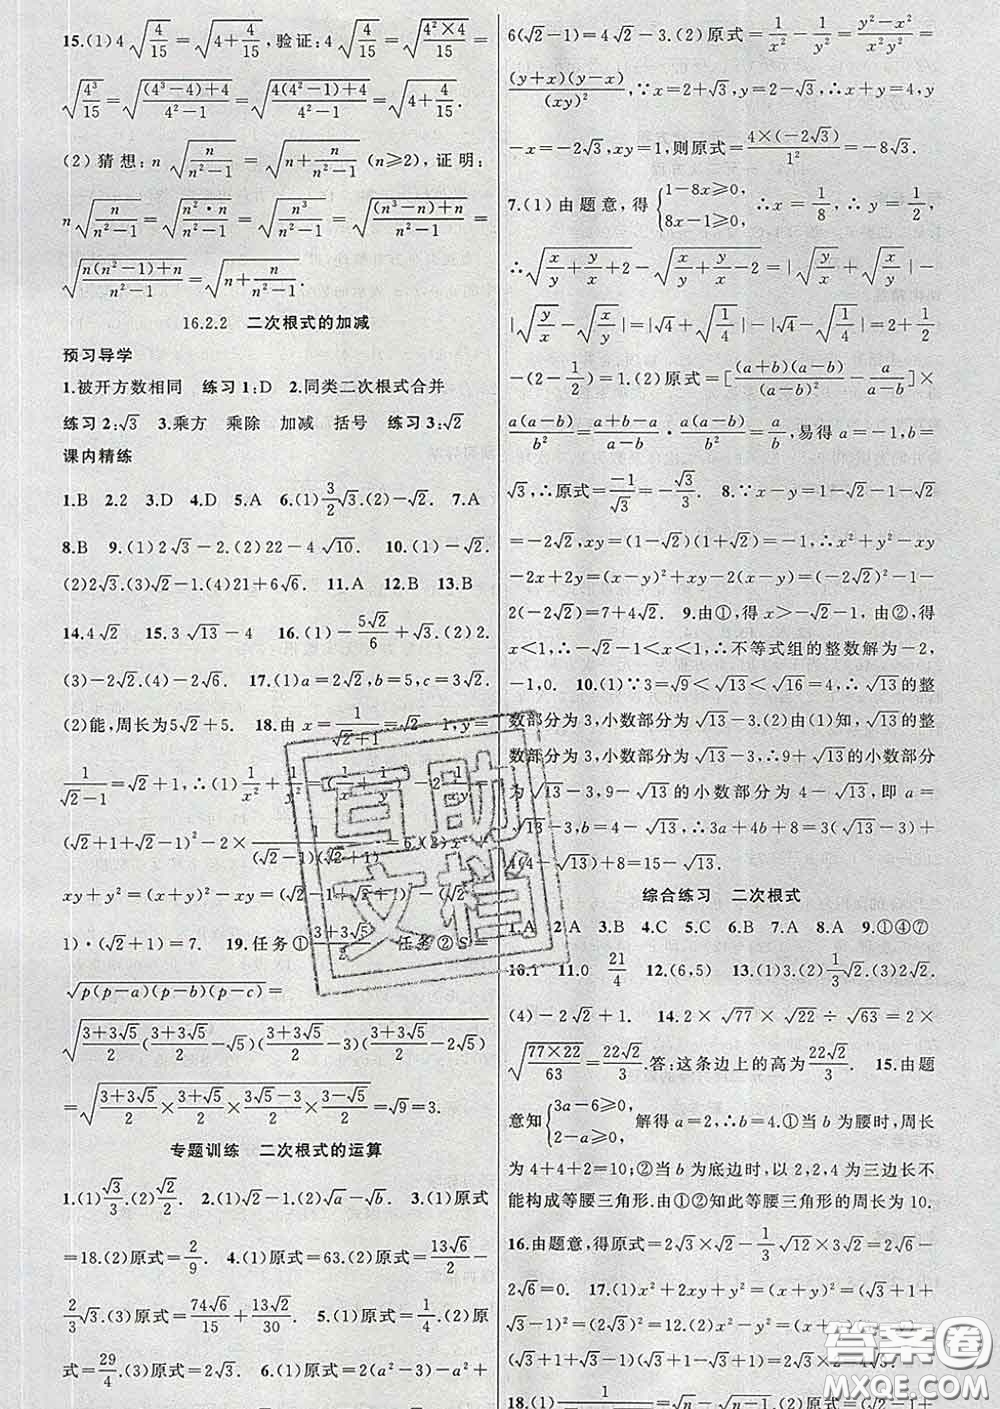 15.(1)4√(4/15)=√(4+4/15),验证:4√(4/15)=√(4²×4/15)=
√(4³/15)=√(((4³-4)+4)/(4²-1))=√((4(4²-1)+4)/(4²-1))=√(4+4/15).
(2)猜想:n√(n/(n²-1))=√(n+n/(n²-1))(n≥2),证明:
n√(n/(n²-1))=√(n²·n/(n²-1))=√(n³/(n²-1))=√(((n³-n)+n)/(n²-1))=
√((n(n²-1)+n)/(n²-1))=√(n+n/(n²-1)).
16.2.2 二次根式的加减
预习导学
1.被开方数相同 练习1:D 2.同类二次根式合并
练习2:√3 3.乘方 乘除 加减 括号 练习3:√2
课内精练
1.B 2.2 3.D 4.D 5.A 6.(1)3/2√3.(2)-√2. 7.A
8.B 9.(1)2√3-2.(2)22-4√10. 10.(1)-√2.
(2)2√3.(3)√2-1.(4)21+6√6. 11.A 12.B 13.B
14.4√2 15.3√13-4 16.(1)-5√2/6+√3.(2)2.
(3)-2√2.(4)-2√6. 17.(1)a=2√2,b=5,c=3√2.
(2)能,周长为5√2+5. 18.由x=1/(√2+1)=√2-1,y=
1/(√2-1)=√2+1,∴(1)1/x²+1/y²=(1/x+1/y)²-2·1/x·1/y=
(√2+1+√2-1)²-2×1/((√2-1)(√2+1))=6.(2)x²-
xy+y²=(x+y)²-3xy=(√2-1+√2+1)²-3(√2-
1)·(√2+1)=7. 19.任务①(3+3√5)/2 任务②S=
√(p(p-a)(p-b)(p-c))=
√((3+3√5)/2((3+3√5)/2-√5)((3+3√5)/2-3)((3+3√5)/2-2√5))
=√((3+3√5)/2×(3+√5)/2×(3√5-3)/2×(3-√5)/2)=√9=3.
专题训练 二次根式的运算
1.(1)√3/3.(2)√2/2. 2.(1)√2-1.(2)√a-√b. 3.(1)原式
=18.(2)原式=2/9. 4.(1)原式=63.(2)原式=13√6/2-
2/3√3.(3)原式=74√6/15+13√2/30. 5.(1)原式=1/4.(2)原
式=29/4.(3)原式=2√3. 6.(1)原式=2(a²-3)-a²+
6(√2-1)=4√2-3.(2)原式=1/x²-1/y²=(y²-x²)/(x²y²)=
(y+x)(y-x)/(xy)²,∵x=2+√3,y=2-√3,∴x+y=4,y
-x=-2√3,xy=1,则原式=4×(-2√3)/1²=-8√3.
7.(1)由题意,得{1-8x≥0,8x-1≥0,∴x=1/8,∴y=1/2,
∴√(x/y+y/x+2)-√(x/y+y/x-2)=|√(x/y)+√(y/x)|-
|√(y/x)-√(x/y)|=|√4+√(1/4)|-|√4-√(1/4)|=2+1/2
-(2-1/2)=1.(2)原式=[(a+b)(a-b)/(a-b)²-a/(a-b)]×
a(a-b)/b²=(a+b-a)/(a-b)·a(a-b)/b²=a/b,易得a=-1,b=
√3,∴原式=-1/√3=-√3/3. 8.∵x-y=1-√2-1-√2
=-2√2,xy=(1-√2)(1+√2)=-1,∴x²+y²-xy
-2x+2y=(x-y)²+xy-2(x-y)=(-2√2)²-1-
2(-2√2)=7+4√2. 9.由①,得x>-√2-1,由②,得
x<1,∴-√2-1<x<1,∴不等式组的整数解为-2,
-1,0. 10.(1)∵3=√9<√13<√16=4,∴√13的整
数部分为3,小数部分为√13-3.(2)由(1)知,√13的整
数部分为3,小数部分为√13-3.∴9+√13的小数部分
为√13-3,9-√13的小数部分为4-√13,即a=
√13-3,b=4-√13,∴3a+4b+8=3(√13-3)+
4(4-√13)+8=15-√13.
综合练习 二次根式
1.A 2.A 3.B 4.C 5.C 6.B 7.A 8.A 9.①④⑦
10.1 11.0 21/4 12.(6,5) 13.(1)3.(2)1/3√3.(3)2√2.
(4)-2√2+1. 14.2×√77×√22÷√63=2×
√(77×22/63)=22√2/3.答:这条边上的高为22√2/3. 15.由题
意知{3a-6≥0,2-a≥0,解得a=2,∴b=4.①当b为腰时,周长
为4+4+2=10;②当b为底边时,以2,2,4为三边长不
能构成等腰三角形.由①②知此等腰三角形的周长为10.
16.由题意,得原式=2√3×√2-1/3√12×3√2=2√6-
2√6=0. 17.(1)x²+2xy+y²=(x+y)²=(√3+1+
√3-1)²=(2√3)²=12.(2)x²-y²=(x+y)(x-y)=
(√3+1+√3-1)(√3+1-√3+1)=2√3×2=4√3.
18.(1)
互助文档
答案圈
MXQE.COM